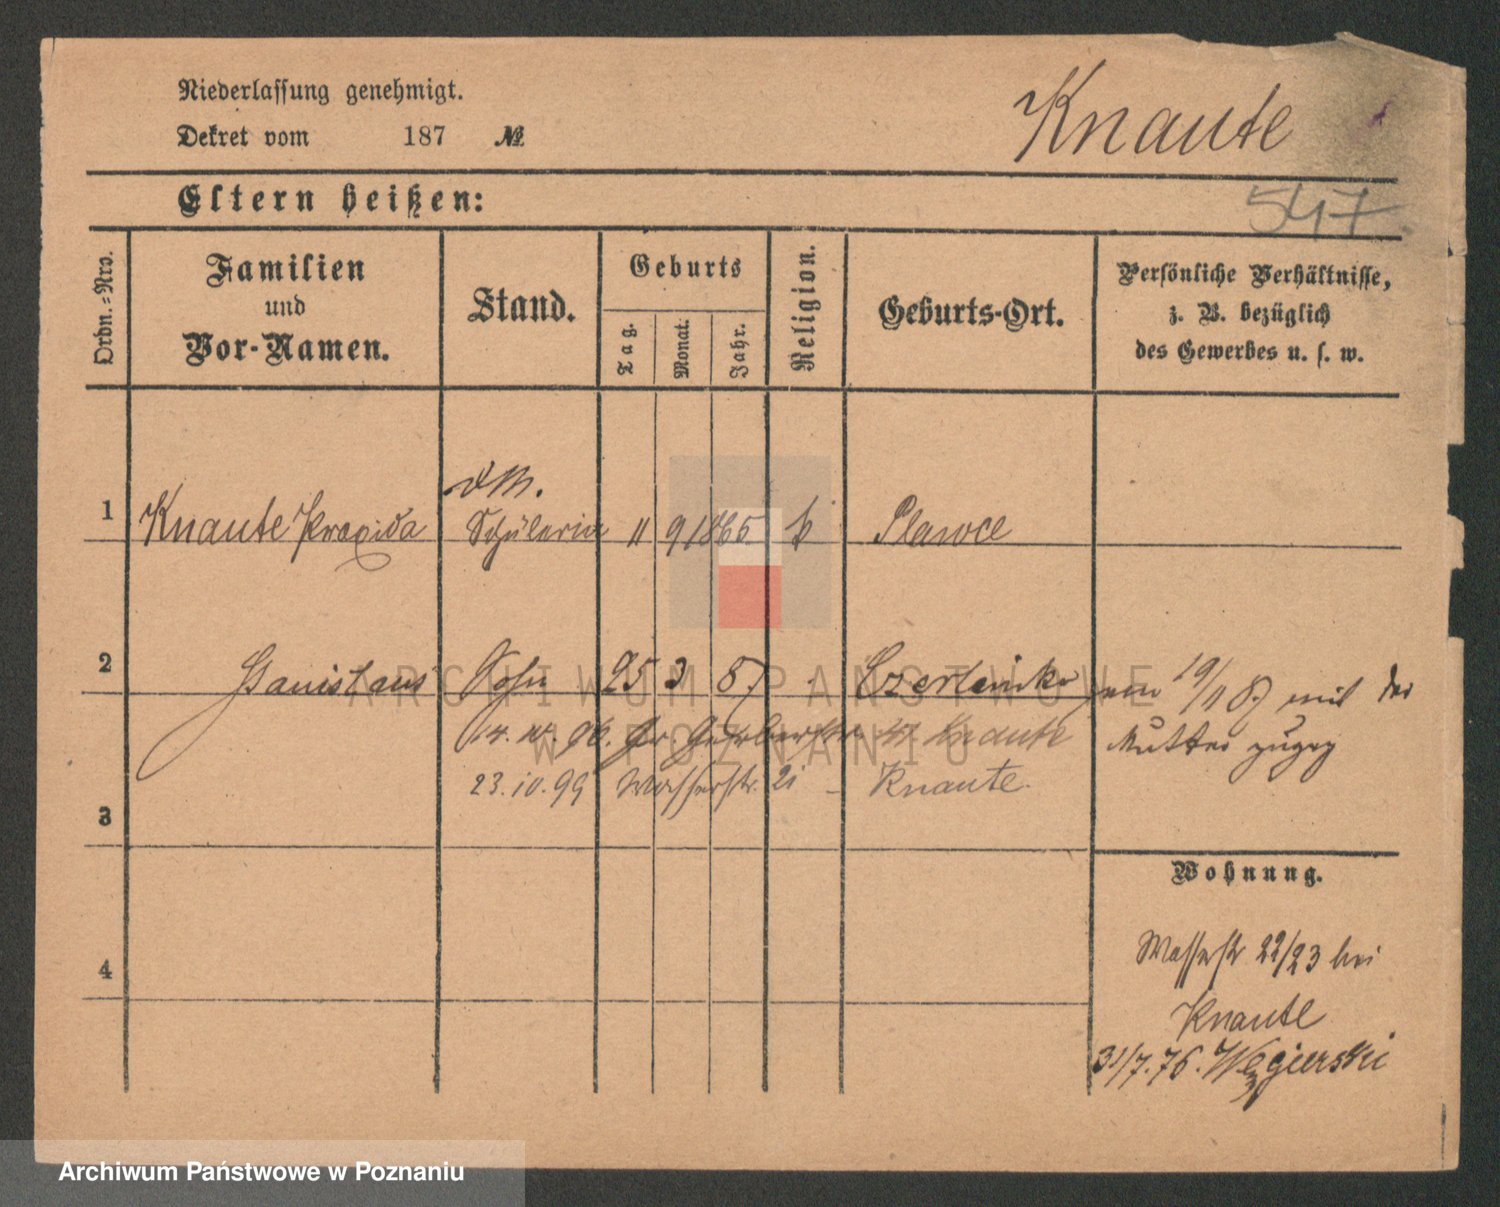 Niederlassung genehmigt.
Dekret vom 187 №
Knaute
547.
Eltern heißen:
Ordn.-Nro.
Familien und Vor-Namen.
Stand.
Geburts
Tag.
Monat.
Jahr.
Religion.
Geburts-Ort.
Persönliche Verhältnisse,
z. B. bezüglich
des Gewerbes u. s. w.
1 Knaute Praxida Schülerin 11 9 1865 k Plawce
2 Stanislaus Sohn 25 3 87 Czerleinko am 19/11 87 mit der
Mutter zugez
14. 10. 96. Gr Gerberstr 47 Knaute
23.10.99 Wasserstr. 21 - Knaute.
3
Wohnung.
4
Wasserstr 22/23 bei
Knaute
31/7.76. Węgierski
ARCHIWUM PAŃSTWOWE
W POZNANIU
Archiwum Państwowe w Poznaniu